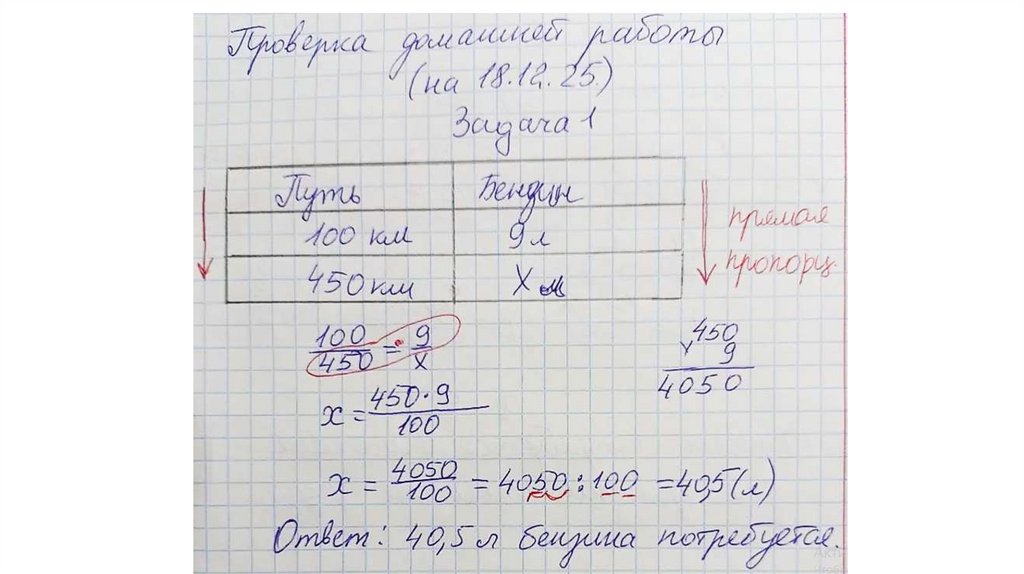 Проверка домашней работы
(на 18.12.25.)
Задача 1
Путь Бензин
100 км 9 л
450 км X л
прямая
пропорц.
100/450 = 9/x
x = 450·9/100
450
× 9
4050
x = 4050/100 = 4050:100 = 40,5 (л)
Ответ: 40,5 л бензина потребуется.